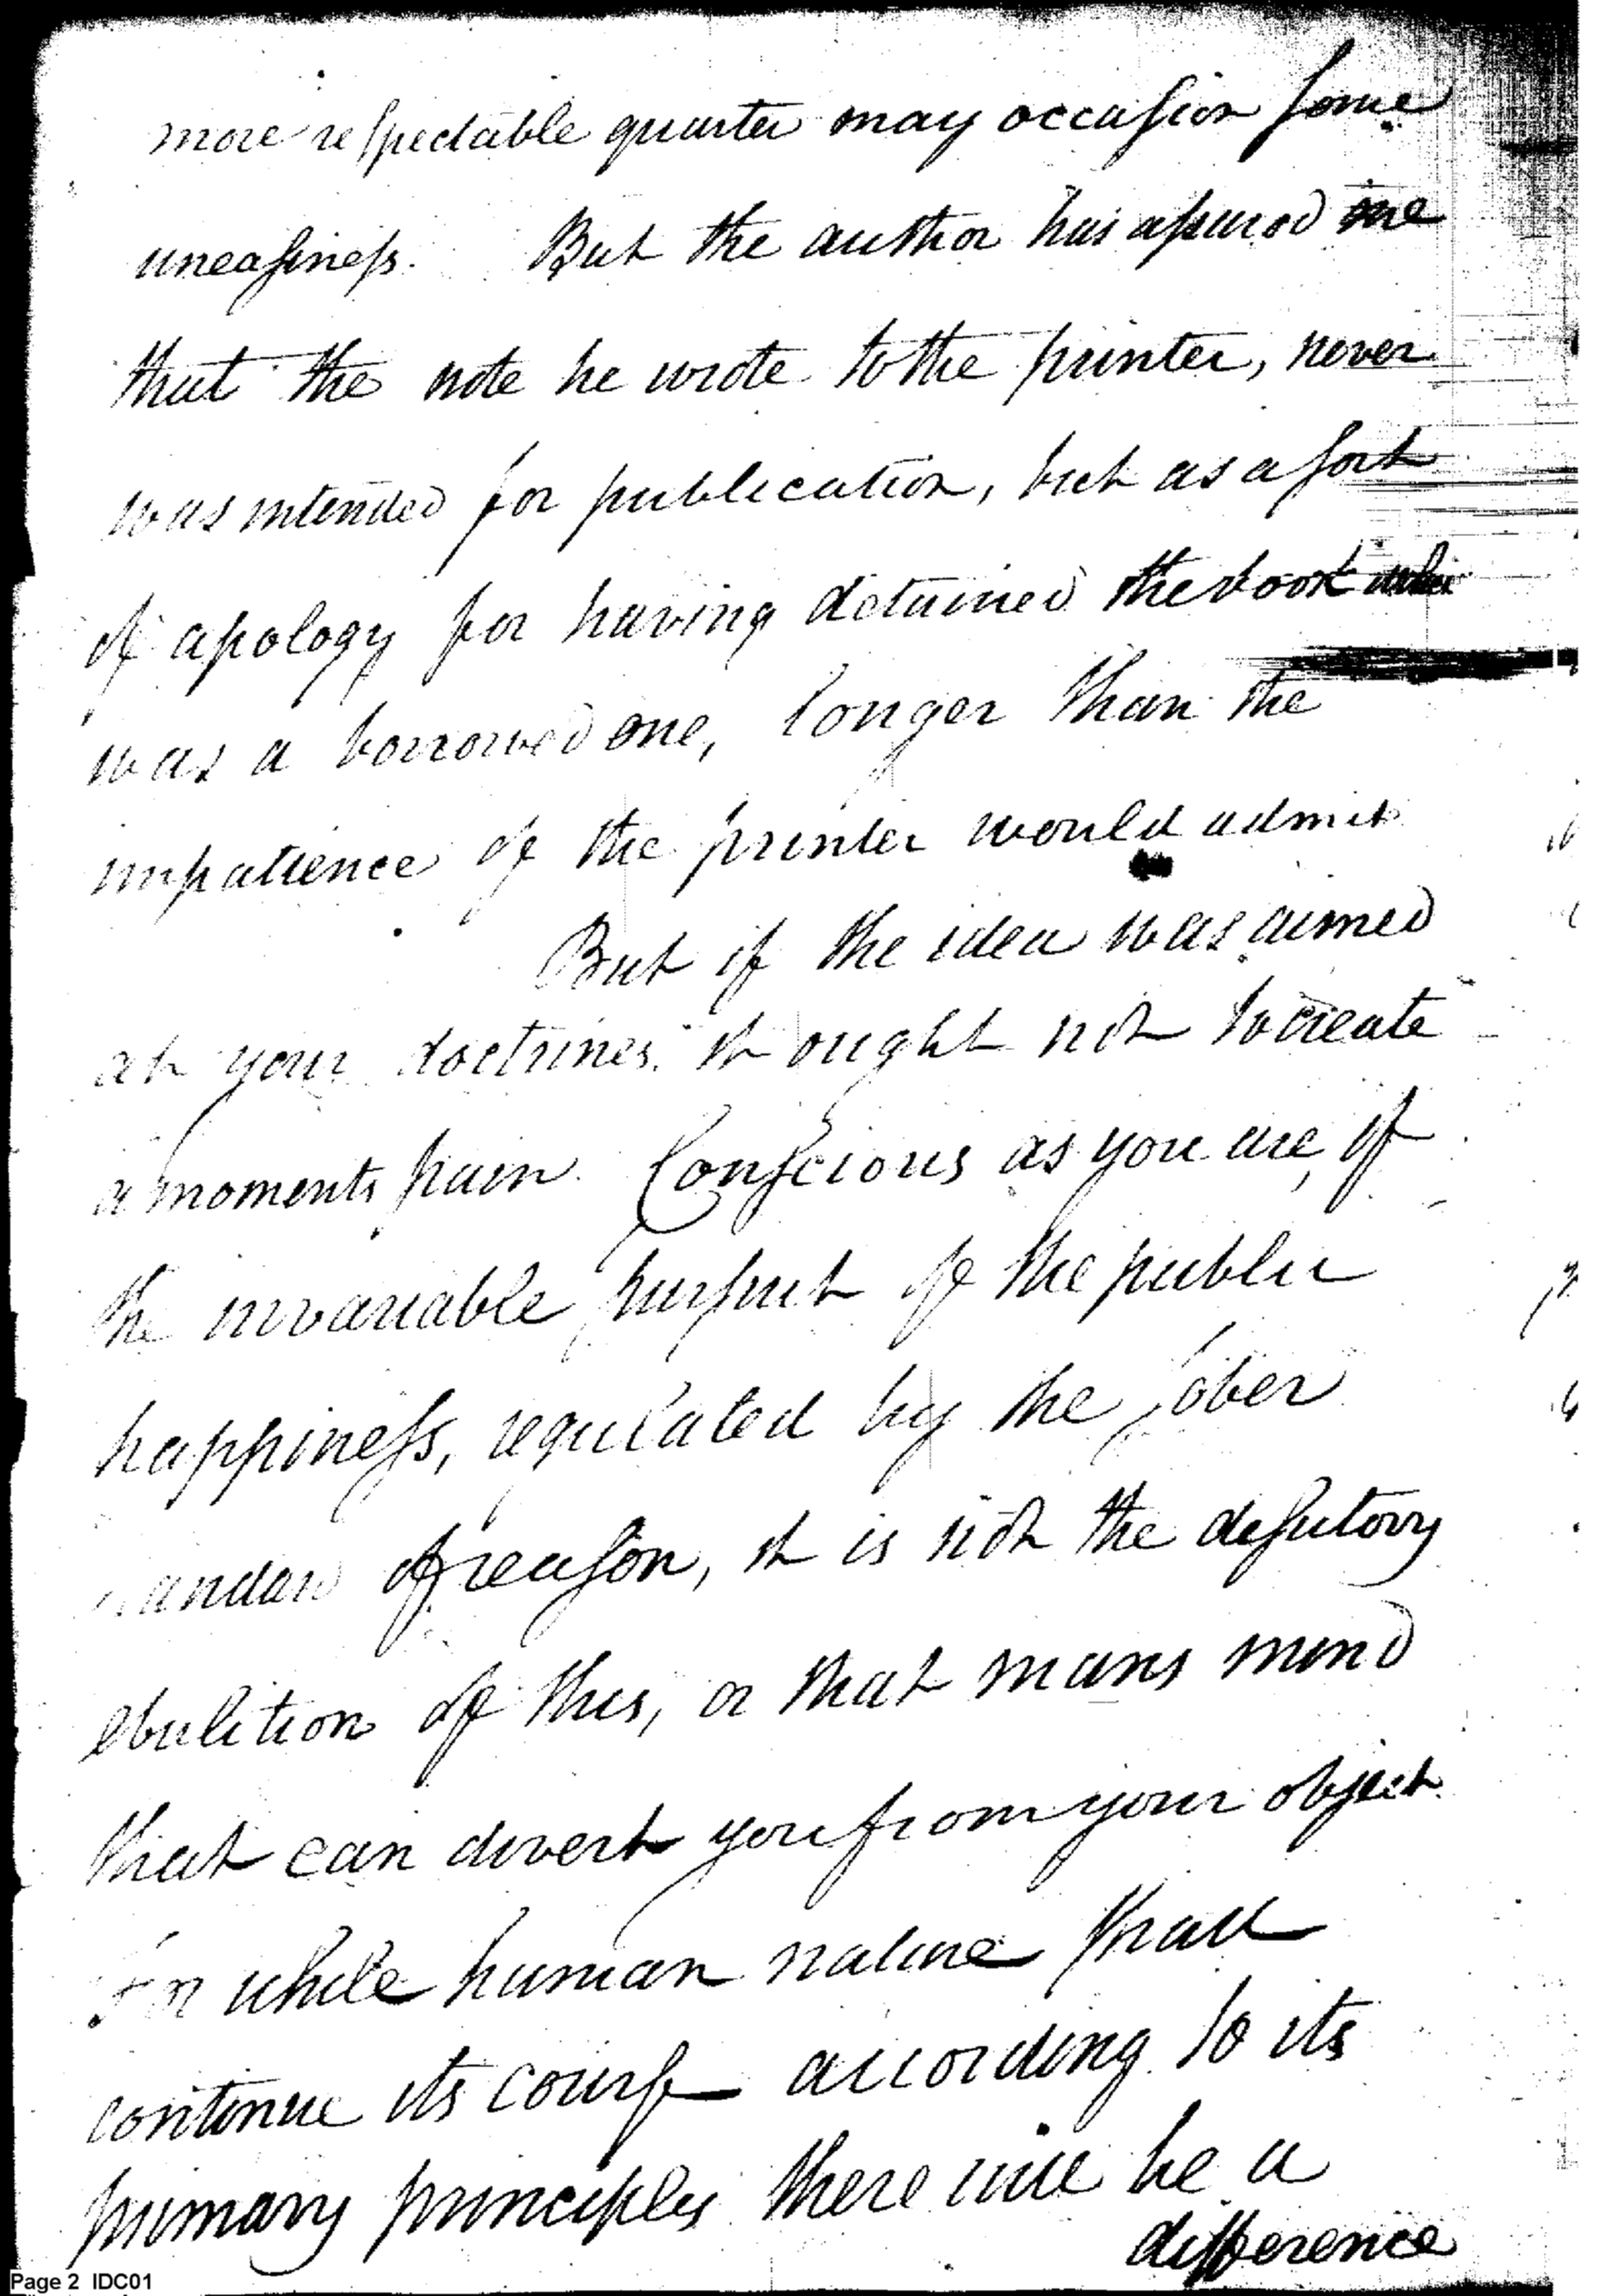 more respectable quarter may occasion some
uneasiness. But the author has assured me
that the note he wrote to the printer, never
was intended for publication, but as a sort
of apology for having detained the book which
was a borrowed one, longer than the
impatience of the printer would admit
But if the idea was aimed
at your doctrines. it ought not to create
a moments pain. Conscious as you are, of
the invariable pursuit of the public
happiness, regulated by the sober
standard of reason, it is not the desultory
ebulition of this, or that mans mind
that can divert you from your object.
For while human nature shall
continue its course according to its
primary principles there will be a
difference
Page 2 IDC01